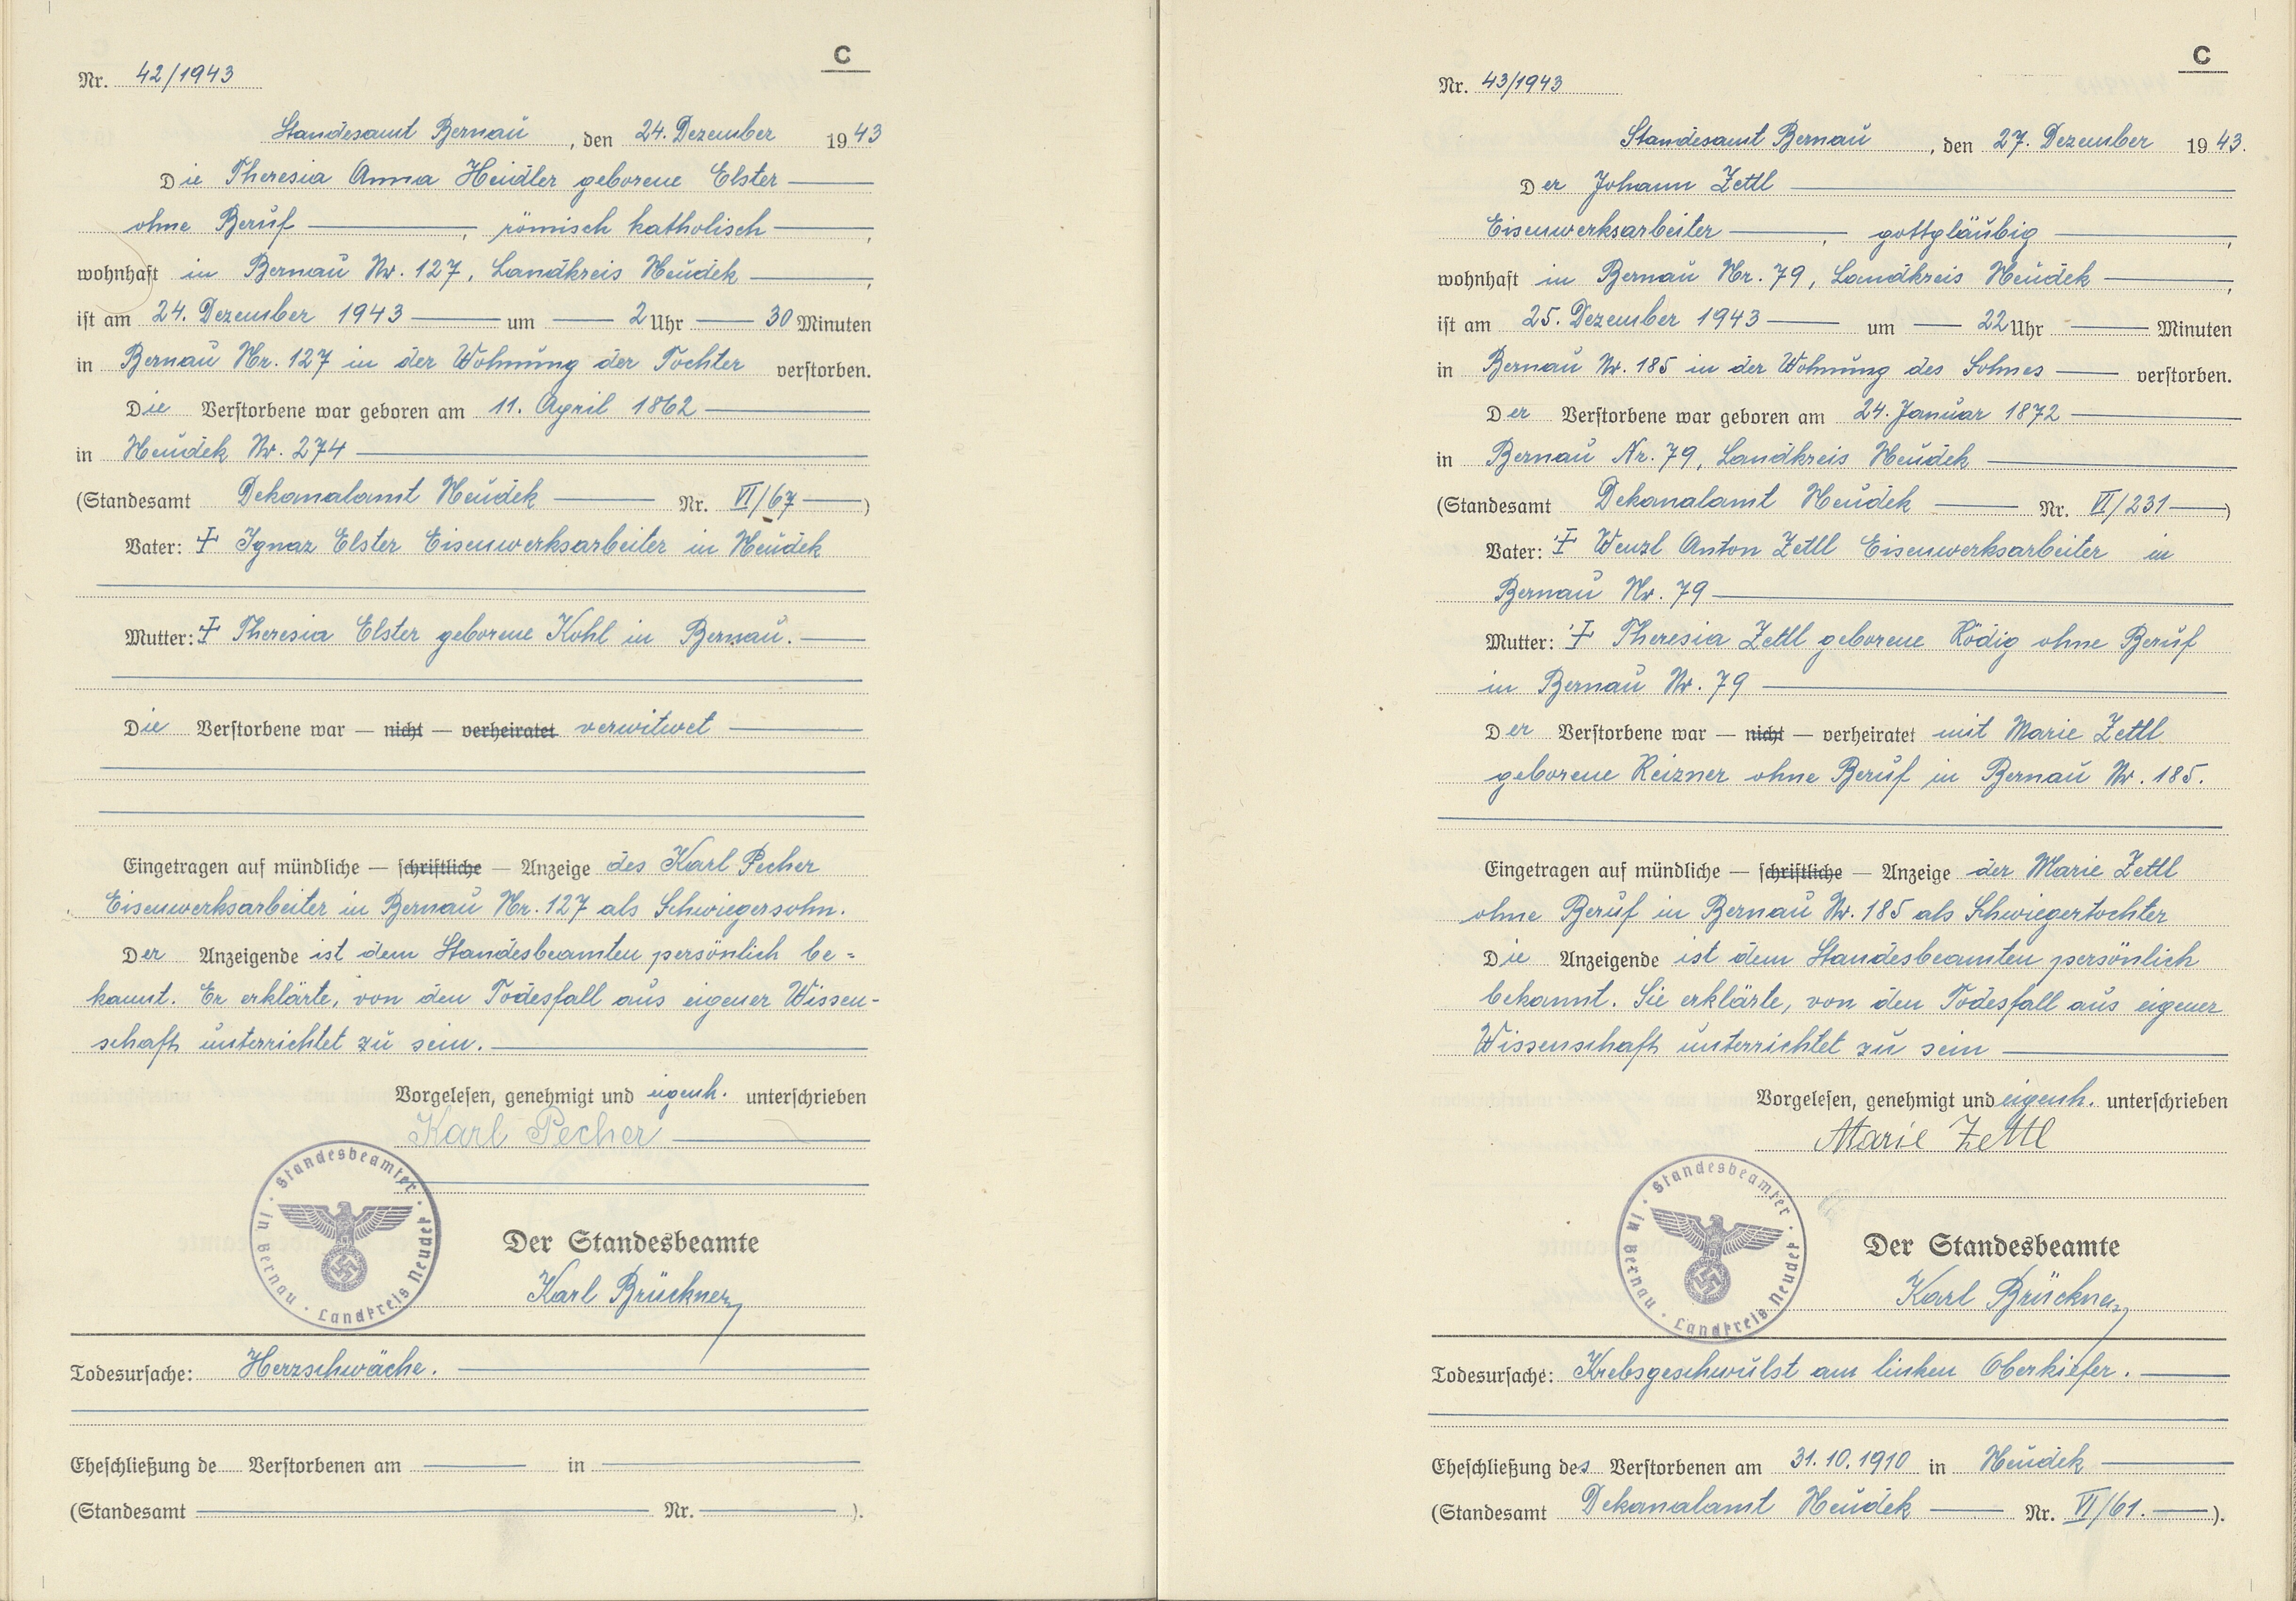 C
Nr. 42/1943
Standesamt Bernau, den 24. Dezember 1943
Die Theresia Anna Heidler geborene Elster
ohne Beruf, römisch katholisch,
wohnhaft in Bernau Nr. 127, Landkreis Neudek,
ist am 24. Dezember 1943 um 2 Uhr 30 Minuten
in Bernau Nr. 127 in der Wohnung der Tochter verstorben.
Die Verstorbene war geboren am 11. April 1862
in Neudek Nr. 274
(Standesamt Dekanalamt Neudek Nr. VI/67)
Vater: + Ignaz Elster Eisenwerksarbeiter in Neudek
Mutter: + Theresia Elster geborene Kohl in Bernau.
Die Verstorbene war — nicht — verheiratet verwitwet
Eingetragen auf mündliche — schriftliche — Anzeige des Karl Pecher
Eisenwerksarbeiter in Bernau Nr. 127 als Schwiegersohn.
Der Anzeigende ist dem Standesbeamten persönlich be=
kannt. Er erklärte, von den Todesfall aus eigener Wissen-
schaft unterrichtet zu sein.
Vorgelesen, genehmigt und eigenh. unterschrieben
Karl Pecher
Standesbeamter · in Bernau · Landkreis Neudek
Der Standesbeamte
Karl Brückner
Todesursache: Herzschwäche.
Eheschließung de Verstorbenen am in
(Standesamt Nr. ).
C
Nr. 43/1943
Standesamt Bernau, den 27. Dezember 1943.
Der Johann Zettl
Eisenwerksarbeiter, gottgläubig,
wohnhaft in Bernau Nr. 79, Landkreis Neudek,
ist am 25. Dezember 1943 um 22 Uhr Minuten
in Bernau Nr. 185 in der Wohnung des Sohnes verstorben.
Der Verstorbene war geboren am 24. Januar 1872
in Bernau Nr. 79, Landkreis Neudek
(Standesamt Dekanalamt Neudek Nr. VI/231)
Vater: + Wenzl Anton Zettl Eisenwerksarbeiter in
Bernau Nr. 79
Mutter: + Theresia Zettl geborene Rödig ohne Beruf
in Bernau Nr. 79
Der Verstorbene war — nicht — verheiratet mit Marie Zettl
geborene Reizner ohne Beruf in Bernau Nr. 185.
Eingetragen auf mündliche — schriftliche — Anzeige der Marie Zettl
ohne Beruf in Bernau Nr. 185 als Schwiegertochter
Die Anzeigende ist dem Standesbeamten persönlich
bekannt. Sie erklärte, von den Todesfall aus eigener
Wissenschaft unterrichtet zu sein
Vorgelesen, genehmigt und eigenh. unterschrieben
Marie Zettl
Standesbeamter · in Bernau · Landkreis Neudek
Der Standesbeamte
Karl Brückner
Todesursache: Krebsgeschwulst am linken Oberkiefer.
Eheschließung des Verstorbenen am 31.10.1910 in Neudek
(Standesamt Dekanalamt Neudek Nr. VI/61.).